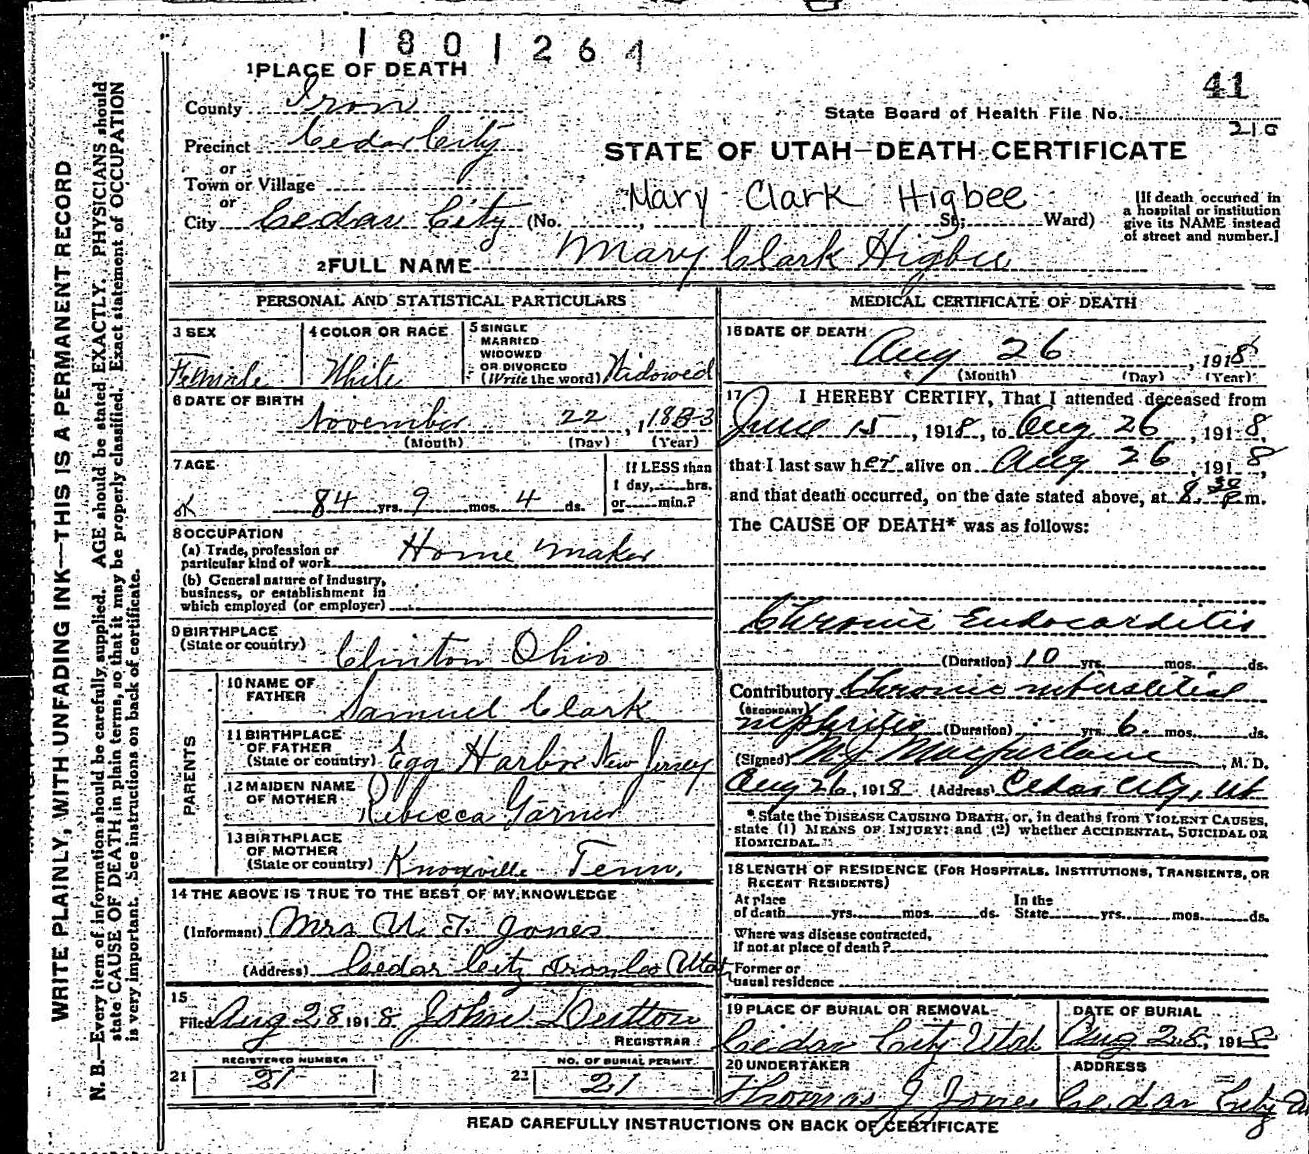 1801264
1 PLACE OF DEATH
41
County Iron
State Board of Health File No. 210
Precinct Cedar City
or
STATE OF UTAH—DEATH CERTIFICATE
Town or Village
or
Mary Clark Higbee
City Cedar City (No. , St; Ward)
[If death occurred in
a hospital or institution
give its NAME instead
of street and number.]
2 FULL NAME Mary Clark Higbee
PERSONAL AND STATISTICAL PARTICULARS
3 SEX
Female
4 COLOR OR RACE
White
5 SINGLE
MARRIED
WIDOWED
OR DIVORCED
(Write the word) Widowed
6 DATE OF BIRTH
November 22, 1833
(Month) (Day) (Year)
7 AGE
84 yrs. 9 mos. 4 ds.
If LESS than
1 day, hrs.
or min.?
8 OCCUPATION
(a) Trade, profession or
particular kind of work Home maker
(b) General nature of industry,
business, or establishment in
which employed (or employer)
9 BIRTHPLACE
(State or country) Clinton Ohio
PARENTS
10 NAME OF
FATHER Samuel Clark
11 BIRTHPLACE
OF FATHER
(State or country) Egg Harbor New Jersey
12 MAIDEN NAME
OF MOTHER Rebecca Garner
13 BIRTHPLACE
OF MOTHER
(State or country) Knoxville Tenn.
14 THE ABOVE IS TRUE TO THE BEST OF MY KNOWLEDGE
(Informant) Mrs U. T. Jones
(Address) Cedar City Iron Co Utah
15
Filed Aug 28 1918 John
REGISTRAR
REGISTERED NUMBER
21 21
NO. OF BURIAL PERMIT
22 21
MEDICAL CERTIFICATE OF DEATH
16 DATE OF DEATH
Aug 26, 1918
(Month) (Day) (Year)
17 I HEREBY CERTIFY, That I attended deceased from
June 15, 1918, to Aug 26, 1918,
that I last saw her alive on Aug 26, 1918,
and that death occurred, on the date stated above, at 8.30 P m.
The CAUSE OF DEATH* was as follows:
Chronic Endocarditis
(Duration) 10 yrs. mos. ds.
Contributory Chronic interstitial
(SECONDARY)
nephritis (Duration) yrs. 6. mos. ds.
(Signed) M J Macfarlane, M. D.
Aug 26, 1918 (Address) Cedar City, Ut
* State the DISEASE CAUSING DEATH, or, in deaths from VIOLENT CAUSES,
state (1) MEANS OF INJURY: and (2) whether ACCIDENTAL, SUICIDAL OR
HOMICIDAL.
18 LENGTH OF RESIDENCE (FOR HOSPITALS, INSTITUTIONS, TRANSIENTS, OR
RECENT RESIDENTS)
At place
of death yrs. mos. ds.
In the
State yrs. mos. ds.
Where was disease contracted,
if not at place of death?
Former or
usual residence
19 PLACE OF BURIAL OR REMOVAL
Cedar City Utah
DATE OF BURIAL
Aug 28, 1918
20 UNDERTAKER
Thomas J Jones
ADDRESS
Cedar City
READ CAREFULLY INSTRUCTIONS ON BACK OF CERTIFICATE
WRITE PLAINLY, WITH UNFADING INK—THIS IS A PERMANENT RECORD
N. B.—Every item of information should be carefully supplied. AGE should be stated EXACTLY. PHYSICIANS should
state CAUSE OF DEATH in plain terms, so that it may be properly classified. Exact statement of OCCUPATION
is very important. See instructions on back of certificate.